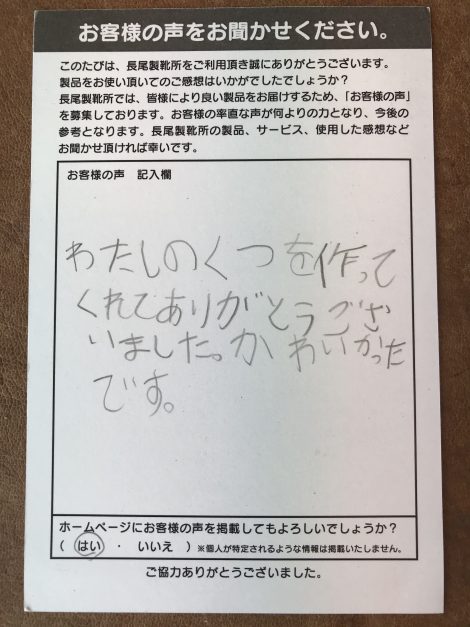 お客様の声をお聞かせください。
このたびは、長尾製靴所をご利用頂き誠にありがとうございます。
製品をお使い頂いてのご感想はいかがでしたでしょうか？
長尾製靴所では、皆様により良い製品をお届けするため、「お客様の声」
を募集しております。お客様の率直な声が何よりの力となり、今後の
参考となります。長尾製靴所の製品、サービス、使用した感想など
お聞かせ頂ければ幸いです。
お客様の声　記入欄
わたしのくつを作って
くれてありがとうござ
いました。かわいかった
です。
ホームページにお客様の声を掲載してもよろしいでしょうか？
（　はい　・　いいえ　）※個人が特定されるような情報は掲載いたしません。
ご協力ありがとうございました。